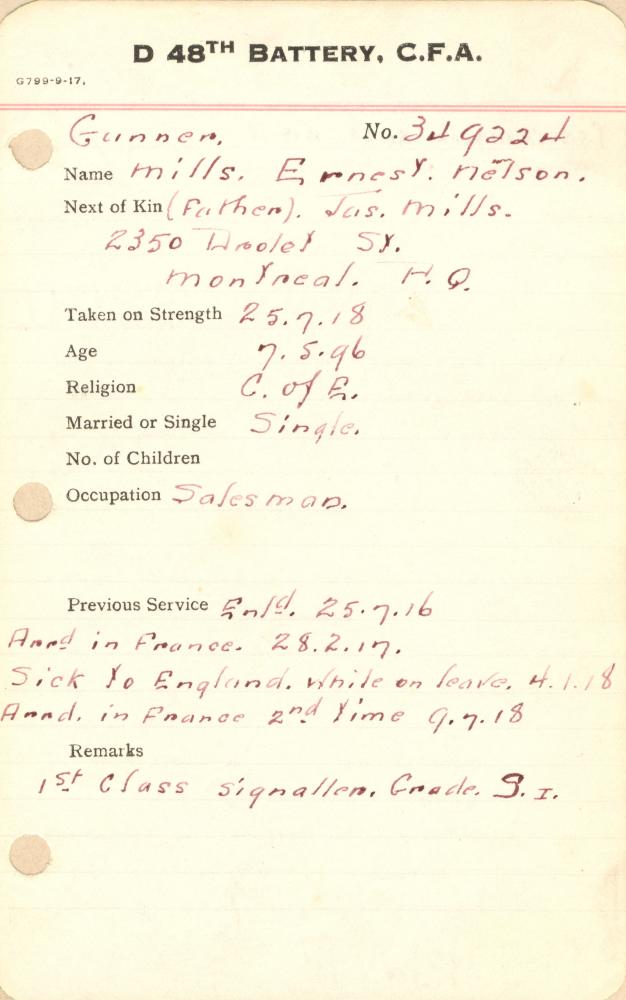 D 48TH BATTERY, C.F.A.
G799-9-17.
Gunner. No. 349224
Name Mills. Ernest. Nelson.
Next of Kin (Father). Jas. Mills.
2350 Drolet St.
Montreal. P.Q.
Taken on Strength 25.7.18
Age 7.5.96
Religion C. of E.
Married or Single Single.
No. of Children
Occupation Salesman.
Previous Service Enld. 25.7.16
Arrd in France. 28.2.17.
Sick to England. While on leave. 4.1.18
Arrd. in France 2nd time 9.7.18
Remarks
1st Class signaller. Grade. S.I.